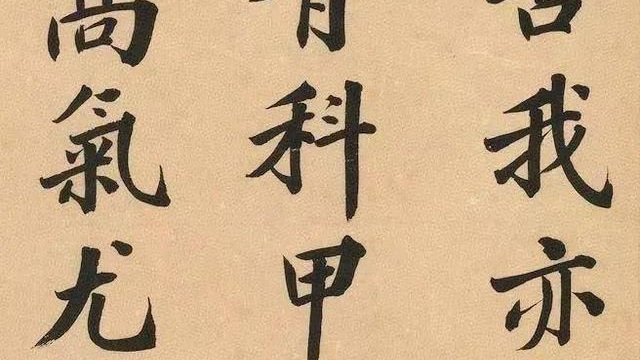 我亦
科甲
高氣尤